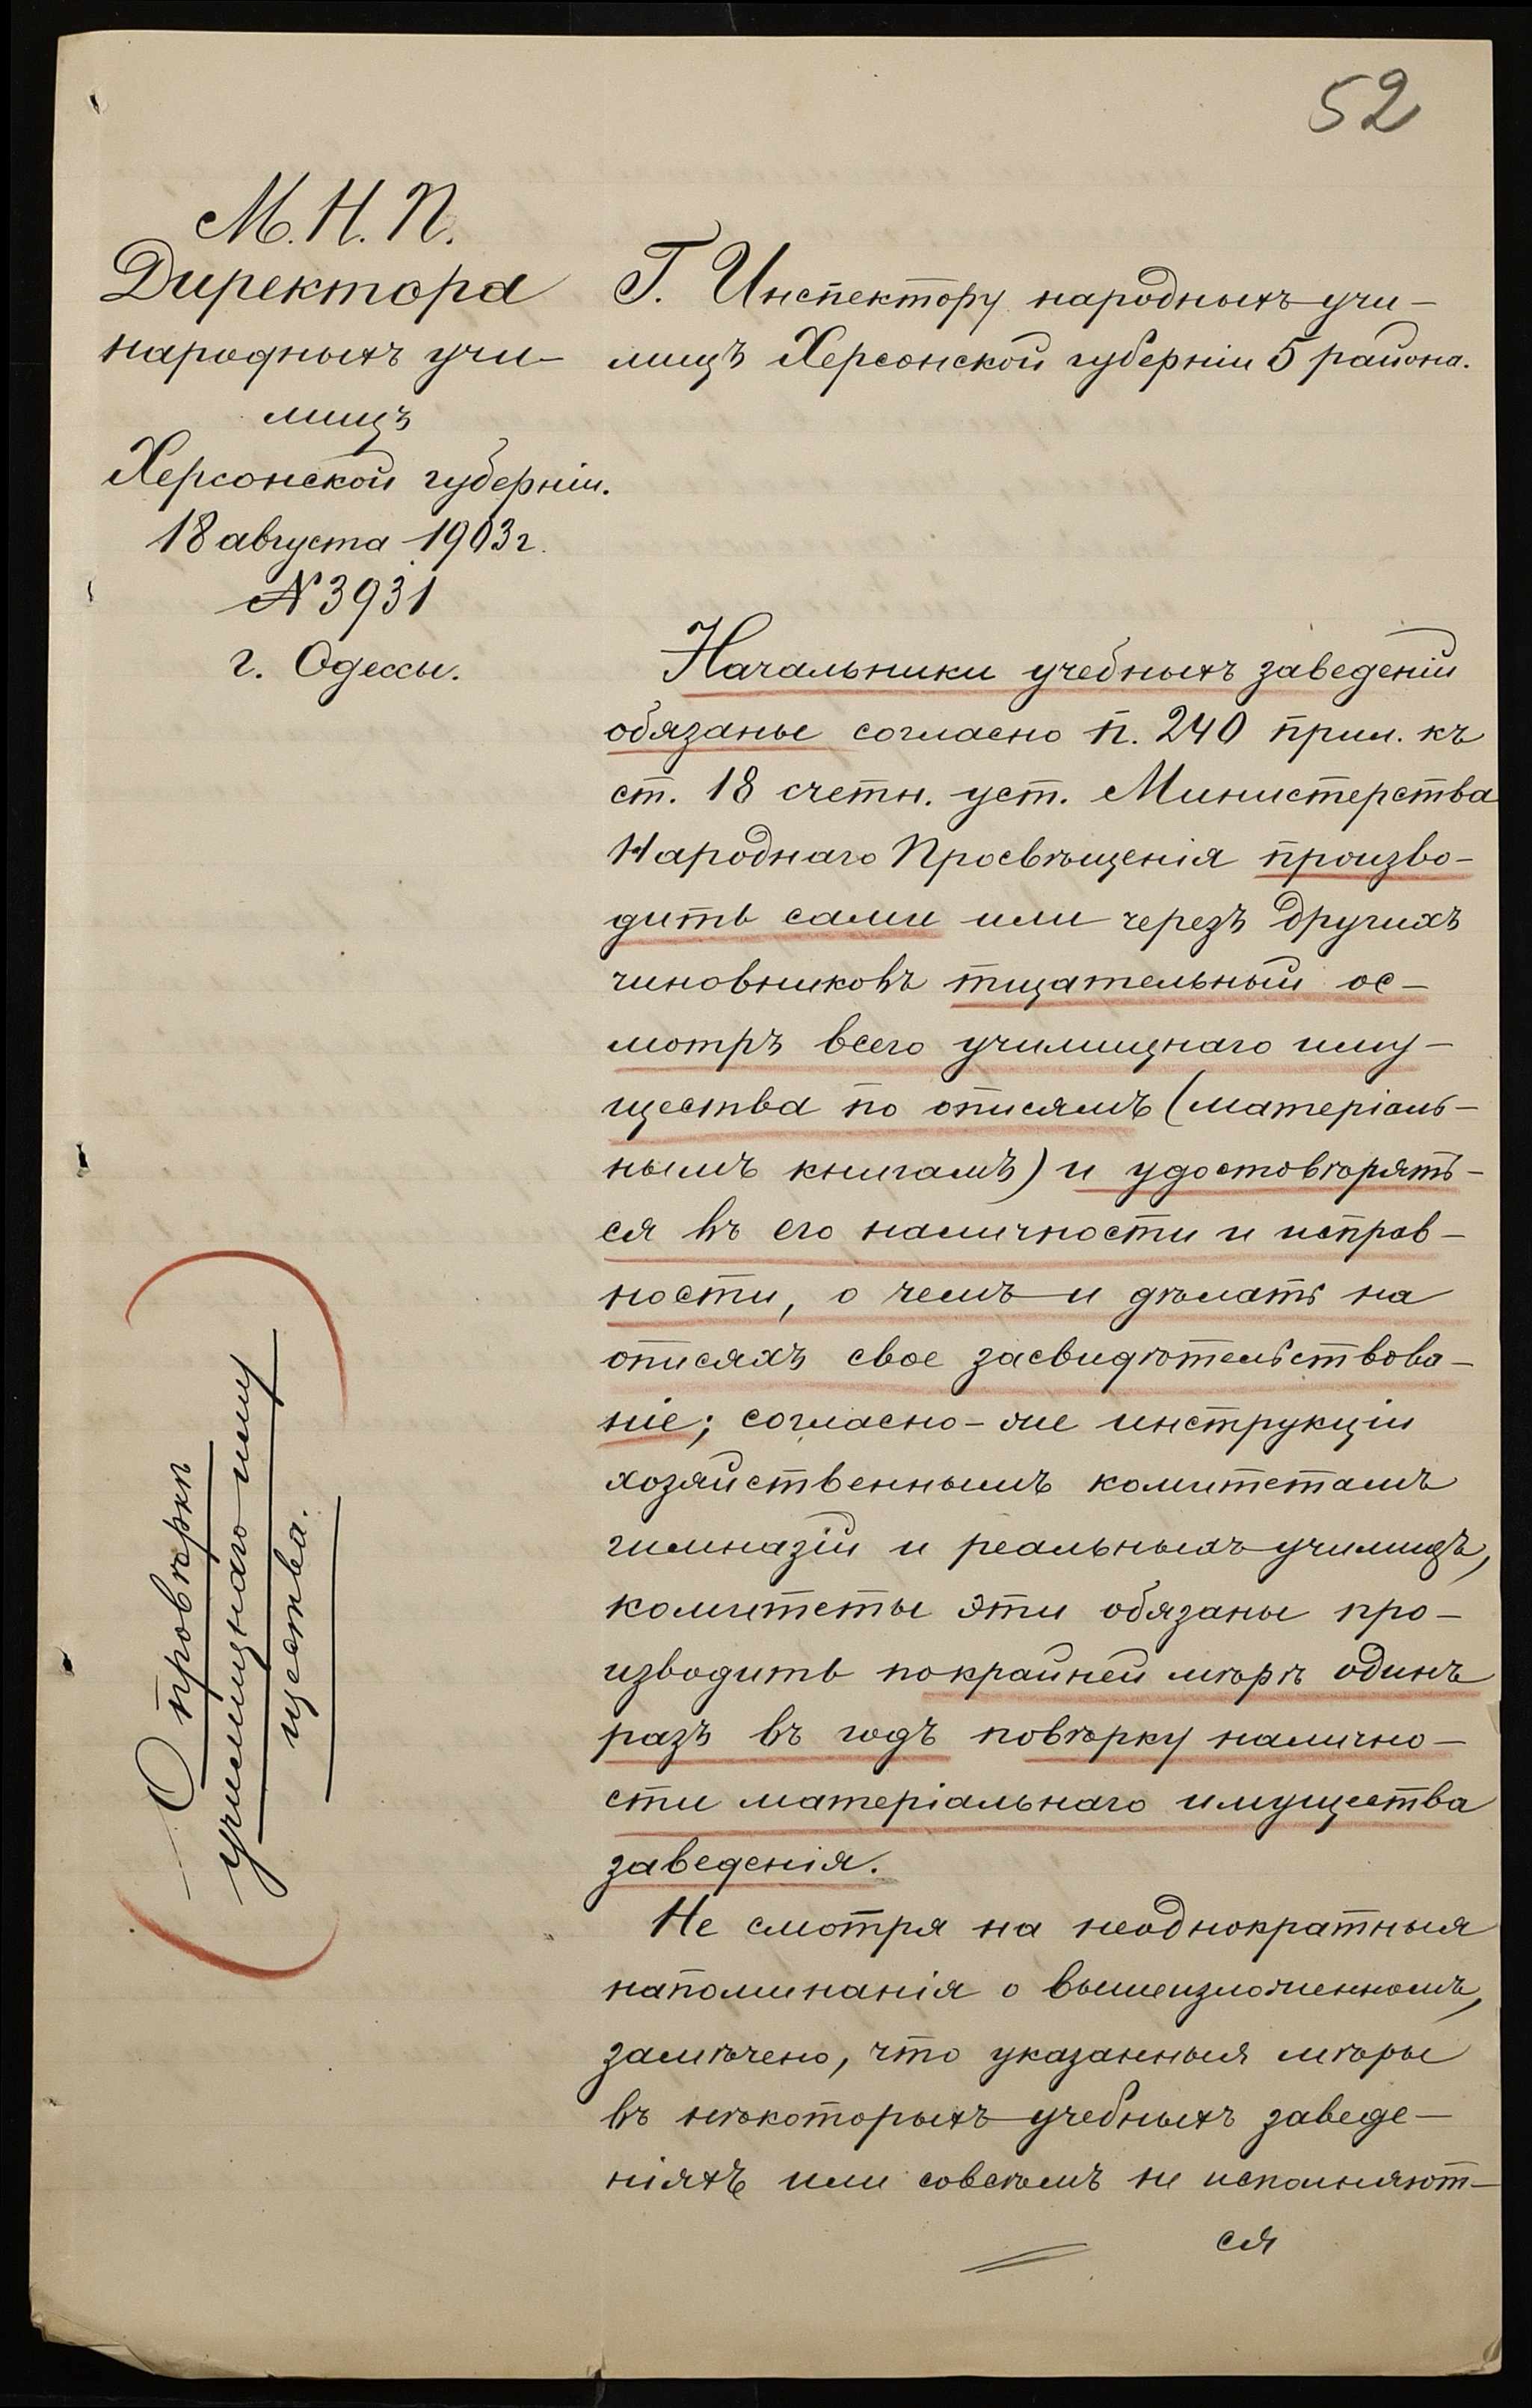 52
М. Н. П.
Директора
народныхъ учи-
лищъ
Херсонской губерніи.
18 августа 1903 г.
№ 3931
г. Одессы.
Г. Инспектору народныхъ учи-
лищъ Херсонской губерніи 5 района.
Начальники учебныхъ заведеній
обязаны согласно п. 240 прил. къ
ст. 18 счетн. уст. Министерства
Народнаго Просвѣщенія произво-
дить сами или черезъ другихъ
чиновниковъ тщательный ос-
мотръ всего училищнаго иму-
щества по описямъ (матеріаль-
нымъ книгамъ) и удостовѣрять-
ся въ его наличности и исправ-
ности, о чемъ и дѣлать на
описяхъ свое засвидѣтельствова-
ніе; согласно-же инструкціи
хозяйственнымъ комитетамъ
гимназій и реальныхъ училищъ,
комитеты эти обязаны про-
изводить покрайней мѣрѣ одинъ
разъ въ годъ повѣрку налично-
сти матеріальнаго имущества
заведенія.
Не смотря на неоднократныя
напоминанія о вышеизложенномъ,
замѣчено, что указанныя мѣры
въ нѣкоторыхъ учебныхъ заведе-
ніяхъ или совсѣмъ не исполняют-
ся
О провѣркѣ
училищнаго иму
щества.